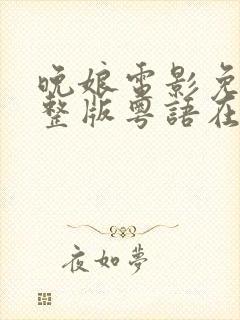 晚娘電影免
整版粵語在
夜如夢